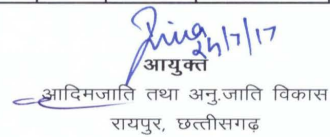 25/7/17
आयुक्त
आदिमजाति तथा अनु.जाति विकास
रायपुर, छत्तीसगढ़